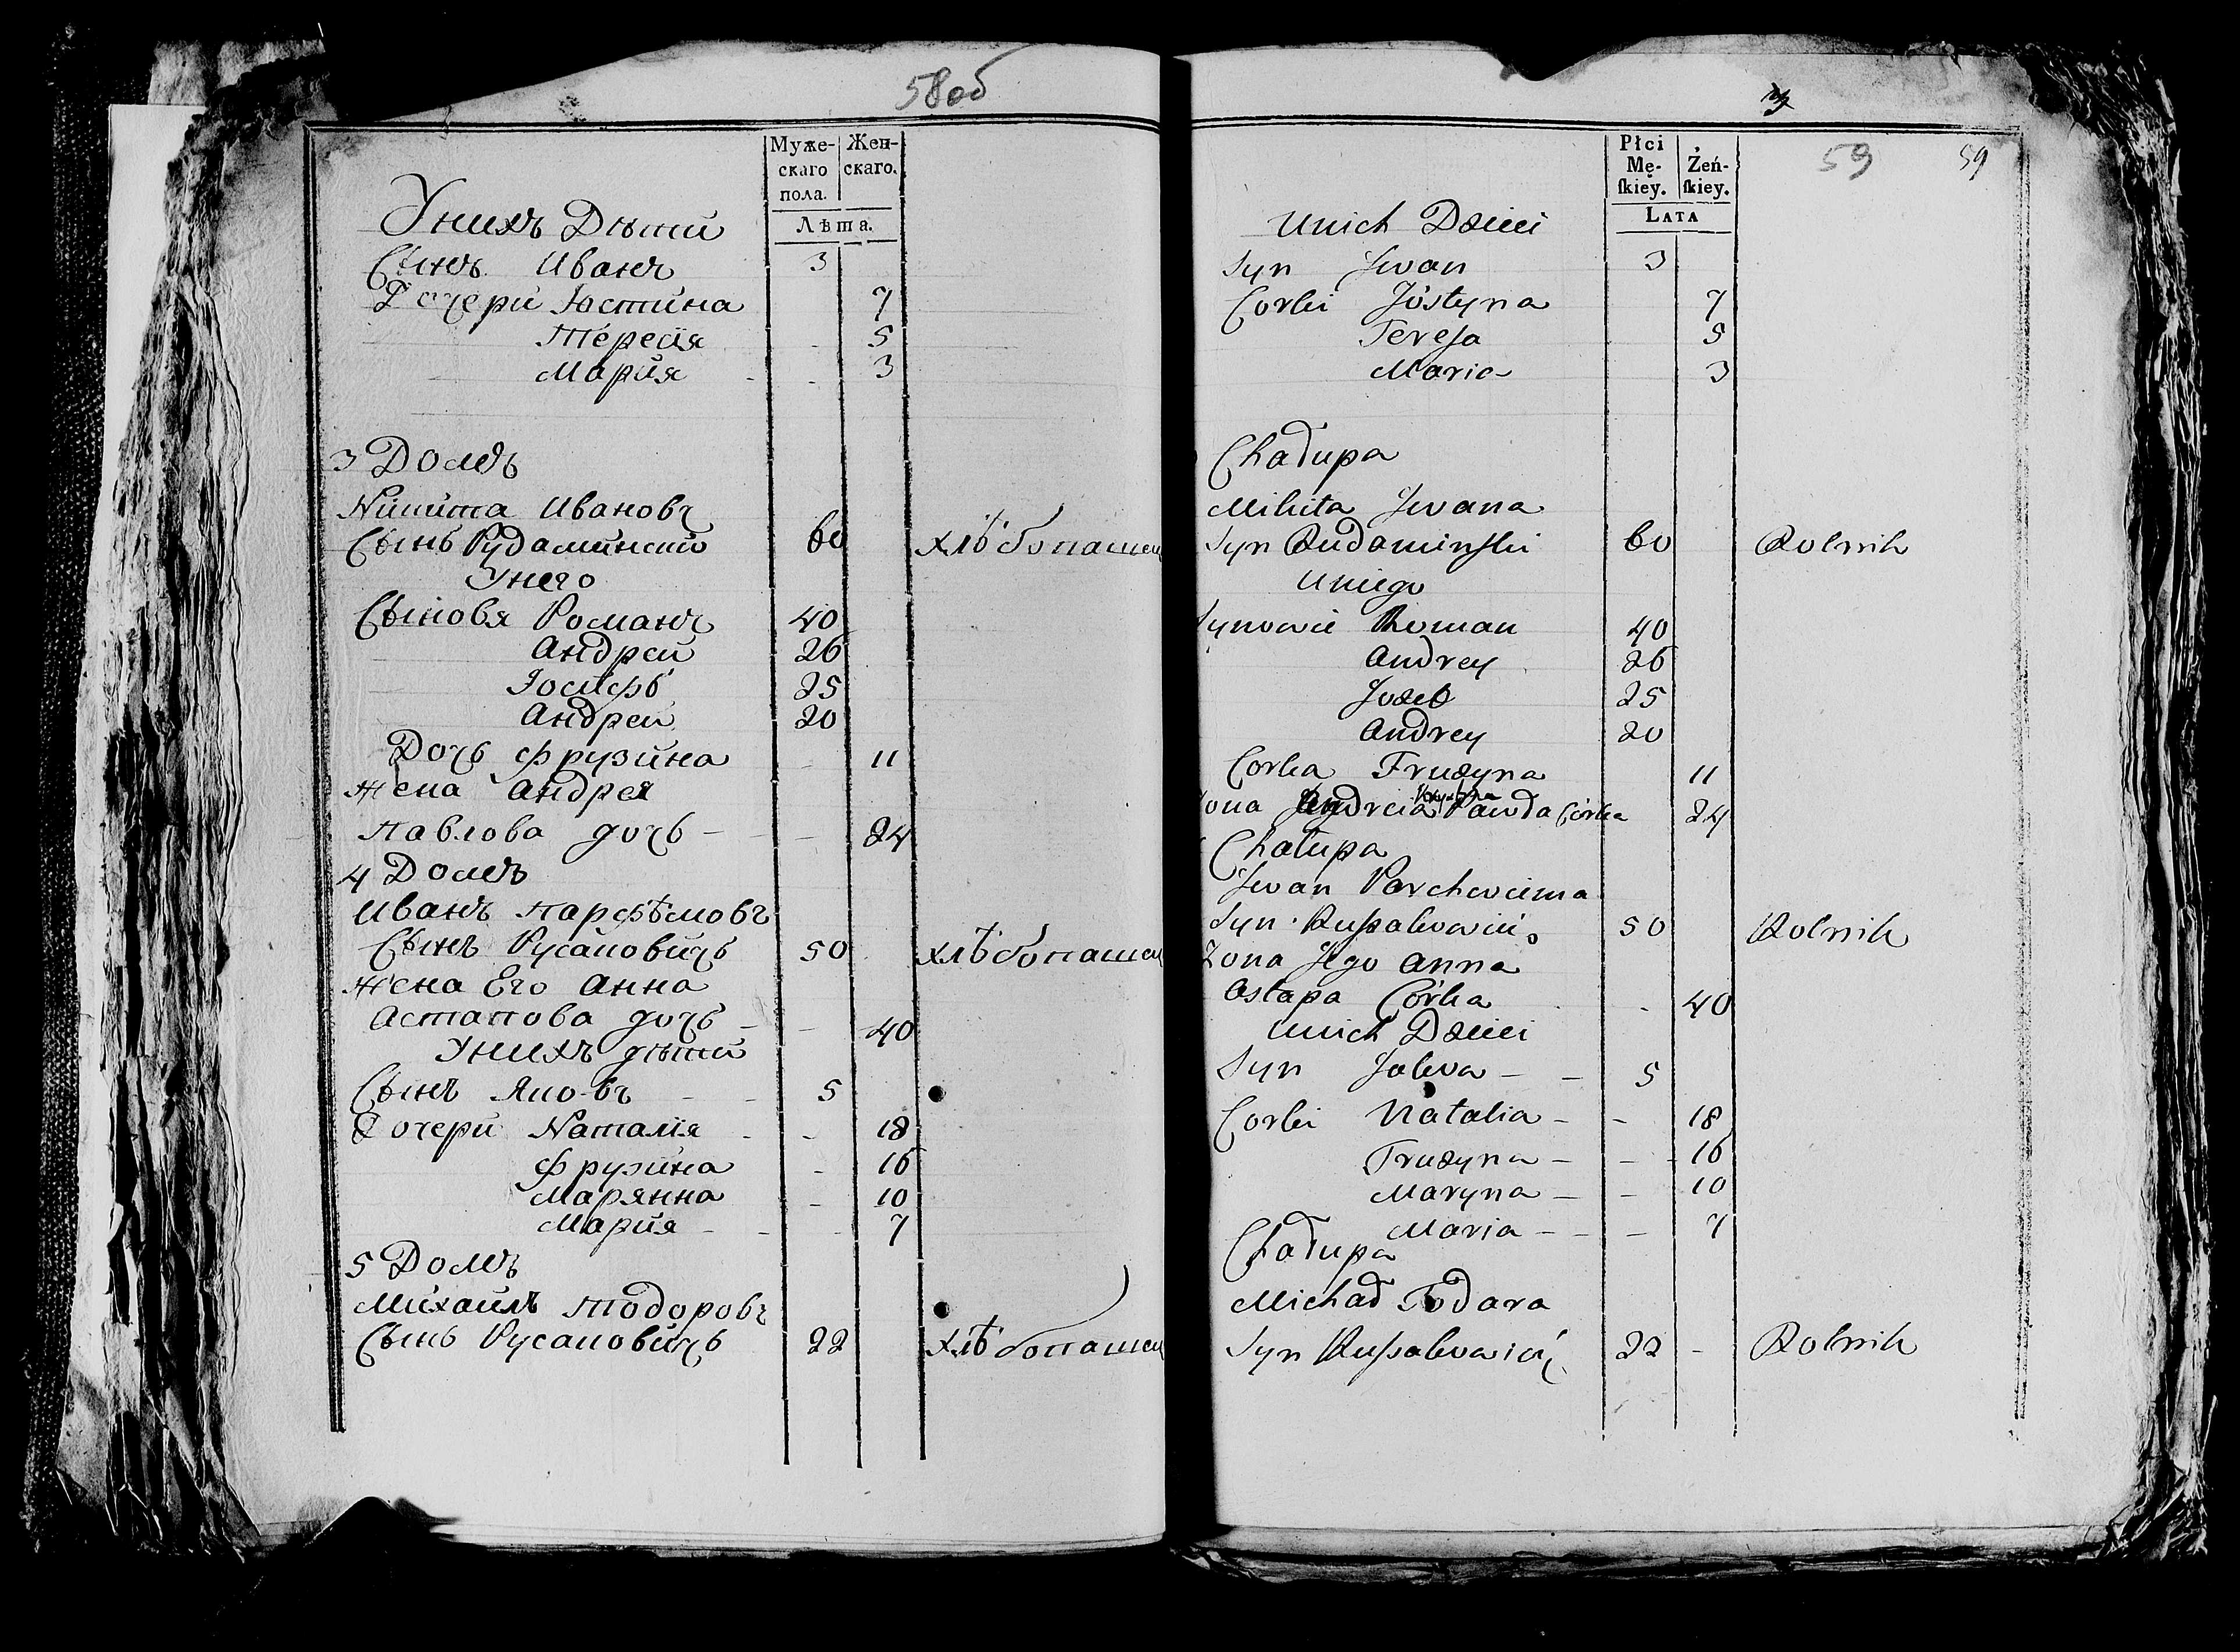 58об
Муже-
скаго
пола.
Жен-
скаго.
Лѣта.
Унихъ Дѣти
Сынъ Иванъ 3
Дочери Юстина 7
Тересія 5
Марія 3
3 Домъ
Никита Ивановъ
Сынъ Рудаминский 60 хлѣбопашец
Унего
Сыновя Романъ 40
Андрей 26
Іосифъ 25
Андрей 20
Дочь Фрузина 11
Жена Андрея
Павлова дочь 24
4 Домъ
Иванъ Парфѣмовъ
Сынъ Русаковичъ 50 хлѣбопашец
Жена Его Анна
Астапова дочь 40
Унихъ дѣти
Сынъ Яковъ 5
Дочери Наталія 18
Фрузина 16
Марянна 10
Марія 7
5 Домъ
Михаилъ Тодоровъ
Сынъ Русаковичъ 22 хлѣбопашец
59 59
Płci
Mę-
ſkiey.
Żeń-
ſkiey.
LATA
Unich Dzieci
Syn Jwan 3
Corki Jóstyna 7
Tereſa 5
Maria 3
Chałupa
Mikita Jwana
Syn Rudaminſki 60 Rolnik
Uniego
Synowie Roman 40
Andrey 26
Jozeb 25
Andrey 20
Corka Fruzyna 11
Żona Andreia Pawła Córka 24
Chałupa
Jwan Parchwiema
Syn Ruſsakowicz 50 Rolnik
Zona Jego Anna
Astapa Córka 40
Unich Dzieci
Syn Jakwa 5
Corki Natalia 18
Fruzyna 16
Maryna 10
Maria 7
Chałupa
Michał Todara
Syn Ruſsakowicz 22 Rolnik